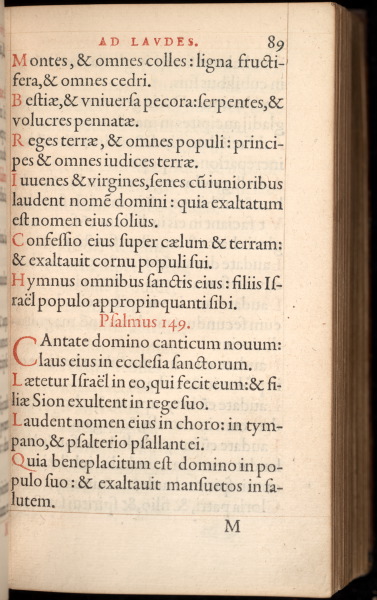 AD LAVDES. 89
Montes, & omnes colles: ligna fructi-
fera, & omnes cedri.
Bestiæ, & vniuersa pecora: serpentes, &
volucres pennatæ.
Reges terræ, & omnes populi: princi-
pes & omnes iudices terræ.
Iuuenes & virgines, senes cũ iunioribus
laudent nomẽ domini: quia exaltatum
est nomen eius solius.
Confessio eius super cælum & terram:
& exaltauit cornu populi sui.
Hymnus omnibus sanctis eius: filiis Is-
raël populo appropinquanti sibi.
Psalmus 149.
CAntate domino canticum nouum:
laus eius in ecclesia sanctorum.
Lætetur Israël in eo, qui fecit eum: & fi-
liæ Sion exultent in rege suo.
Laudent nomen eius in choro: in tym-
pano, & psalterio psallant ei.
Quia beneplacitum est domino in po-
pulo suo: & exaltauit mansuetos in sa-
lutem.
M